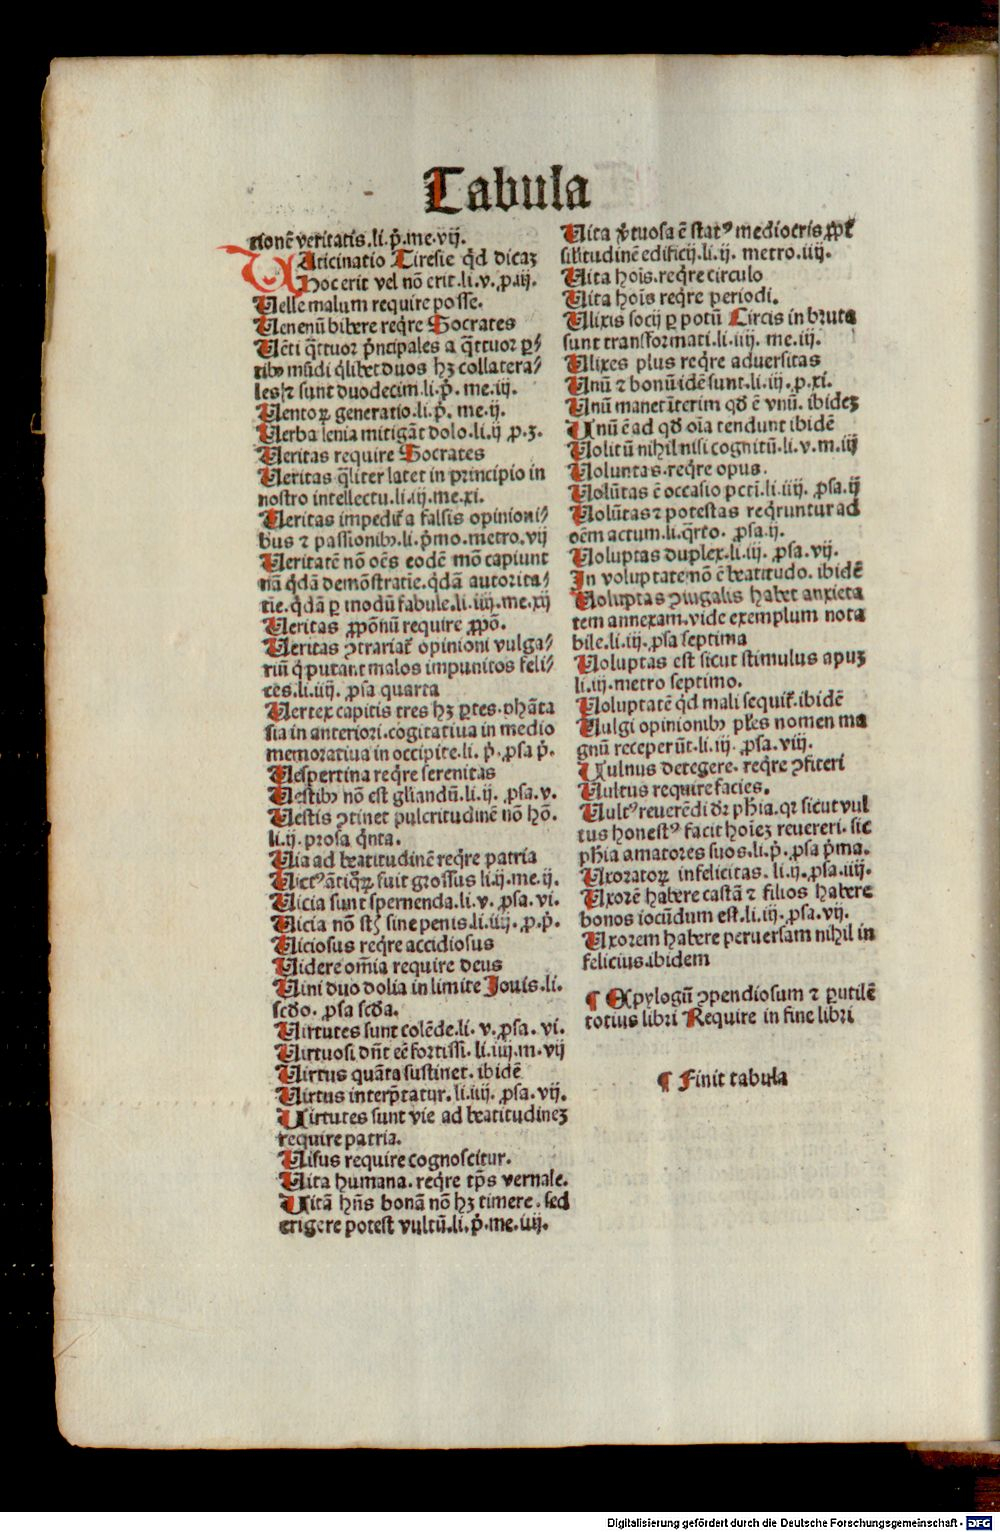 Tabula
tionē veritatis.li.p̄.me.vij.
VAticinatio Tiresie qd̄ dicaꝫ
Hoc erit vel nō erit.li.v.ꝓ.iij.
Uelle malum require posse.
Uenenū bibere reqͥre Socrates
Uēti qᷓttuor pͥncipales a qᷓttuor ꝑ⸗
tibꝰ mūdi qͥlibet duos hꝫ collatera⸗
les ⁊ sunt duodecim.li.p̄. me.iij.
Uentoꝝ generatio.li.p̄. me.ij.
Uerba lenia mitigāt dolo.li.ij ꝓ.3.
Ueritas require Socrates
Ueritas qᷓliter latet in principio in
nostro intellectu.li.iij.me.xi.
Ueritas impedit̃ a falsis opinioni⸗
bus ⁊ passionibꝰ.li.pͥmo.metro.vij
Ueritatē nō oēs eodē mō capiunt
nā qͥdā demōstratiē.qͥdā autorita⸗
tiē.qͥdā ꝑ modū fabule.li.iiij.me.xij
Ueritas ꝓpōnū require ꝓpō.
Ueritas ꝯtrariat̃ opinioni vulga⸗
riū qͥ putant malos impunitos feli⸗
ces.li.iiij. ꝓsa quarta
Uertex capitis tres hꝫ ꝑtes.phāta
sia in anteriori.cogitatiua in medio
memoratiua in occipite.li. p̄. ꝓsa p̄.
Uespertina reqͥre serenitas
Uestibꝰ nō est gliandū.li.ij. ꝓsa.v.
Uestis ꝯtinet pulcritudinē nō hō.
li.ij.prosa qͥnta.
Uia ad beatitudinē reqͥre patria
Uictꝰ ātiqͦꝝ fuit grossus li.ij.me.ij.
Uicia sunt spernenda.li.v. ꝓsa. vi.
Uicia nō st̄ sine penis.li.iiij. ꝓ.p̄.
Uiciosus reqͥre accidiosus
Uidere om̄ia require deus
Uini duo dolia in limite Jouis.li.
scd̄o. ꝓsa scd̄a.
Uirtutes sunt colēde.li. v. ꝓsa. vi.
Uirtuosi dn̄t eē fortissi. li.iiij.m.vij
Uirtus quāta sustinet. ibidē
Uirtus interp̄tatur. li.iiij. ꝓsa. vij.
Uirtutes sunt vie ad beatitudineꝫ
require patria.
Uisus require cognoscitur.
Uita humana. reqͥre tp̄s vernale.
Uitā hn̄s bonā nō hꝫ timere. sed
erigere potest vultū.li.p̄.me.iiij.
Uita v̓tuosa ē statꝰ mediocris ꝓpt̃
silitudinē edificij.li.ij. metro.iiij.
Uita hoīs.reqͥre circulo
Uita hoīs reqͥre periodi.
Ulixis socij ꝑ potū Circis in bruta
sunt transformati.li.iiij. me.iij.
Ulixes plus reqͥre aduersitas
Unū ⁊ bonū idē sunt.li.iij.ꝓ.xi.
Unū manet īterim qd̄ ē vnū. ibideꝫ
Unū ē ad qd̄ oīa tendunt ibidē
Uolitū nihil nisi cognitū.li.v.m.iij
Uoluntas.reqͥre opus.
Uolūtas ē occasio pcti.li.iiij. ꝓsa.ij
Uolūtas ⁊ potestas reqͥruntur ad
oēm actum.li.qͣrto. ꝓsa.ij.
Uoluptas duplex.li.iij. ꝓsa. vij.
In voluptate nō ē beatitudo. ibidē
Uoluptas ꝯiugalis habet anxieta
tem annexam.vide exemplum nota
bile.li.iij.ꝓsa septima
Uoluptas est sicut stimulus apuꝫ
li.iij.metro septimo.
Uoluptatē qͥd mali sequit̃.ibidē
Uulgi opinionibꝰ pl̃es nomen ma
gnū receperūt.li.iij. ꝓsa. viij.
Uulnus detegere. reqͥre ꝯfiteri
Uultus require facies.
Uultꝰ reuerēdi dr̄ ph̄ia. qꝛ sicut vul
tus honestꝰ facit hoīeꝫ reuereri. sic
ph̄ia amatores suos.li.p̄. ꝓsa pͥma.
Uxoratoꝝ infelicitas. li.ij.ꝓsa.iiij.
Uxorē habere castā ⁊ filios habere
bonos iocūdum est.li.iij. ꝓsa. vij.
Uxorem habere peruersam nihil in
felicius.ibidem
¶ Epylogū ꝯpendiosum ⁊ ꝑutilē
totius libri Require in fine libri
¶ Finit tabula
Digitalisierung gefördert durch die Deutsche Forschungsgemeinschaft - DFG